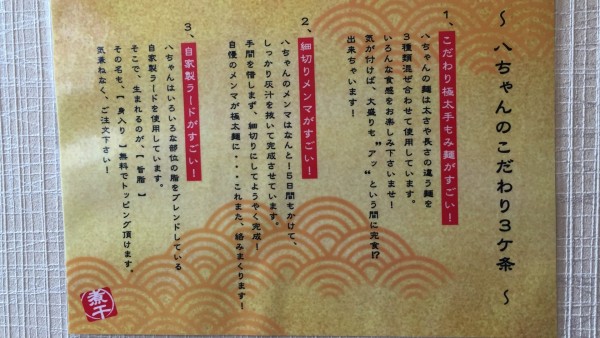 ～ハちゃんのこだわり3ケ条～
1、こだわり極太手もみ麺がすごい！
ハちゃんの麺は太さや長さの違う麺を
3種類混ぜ合わせて使用しています。
いろんな食感をお楽しみ下さいませ！
気が付けば、大盛りも〝アッ〟という間に完食!?
出来ちゃいます！
2、細切りメンマがすごい！
ハちゃんのメンマはなんと！5日間もかけて、
しっかり灰汁を抜いて完成させています。
手間を惜しまず、細切りにしてようやく完成！
自慢のメンマが極太麺に・・・これまた、絡みまくります！
3、自家製ラードがすごい！
ハちゃんはいろいろな部位の脂をブレンドしている
自家製ラードを使用しています。
そこで、生まれるのが、【背脂】
その名も、【身入り】無料でトッピング頂けます。
気兼ねなく、ご注文下さい！
煮干